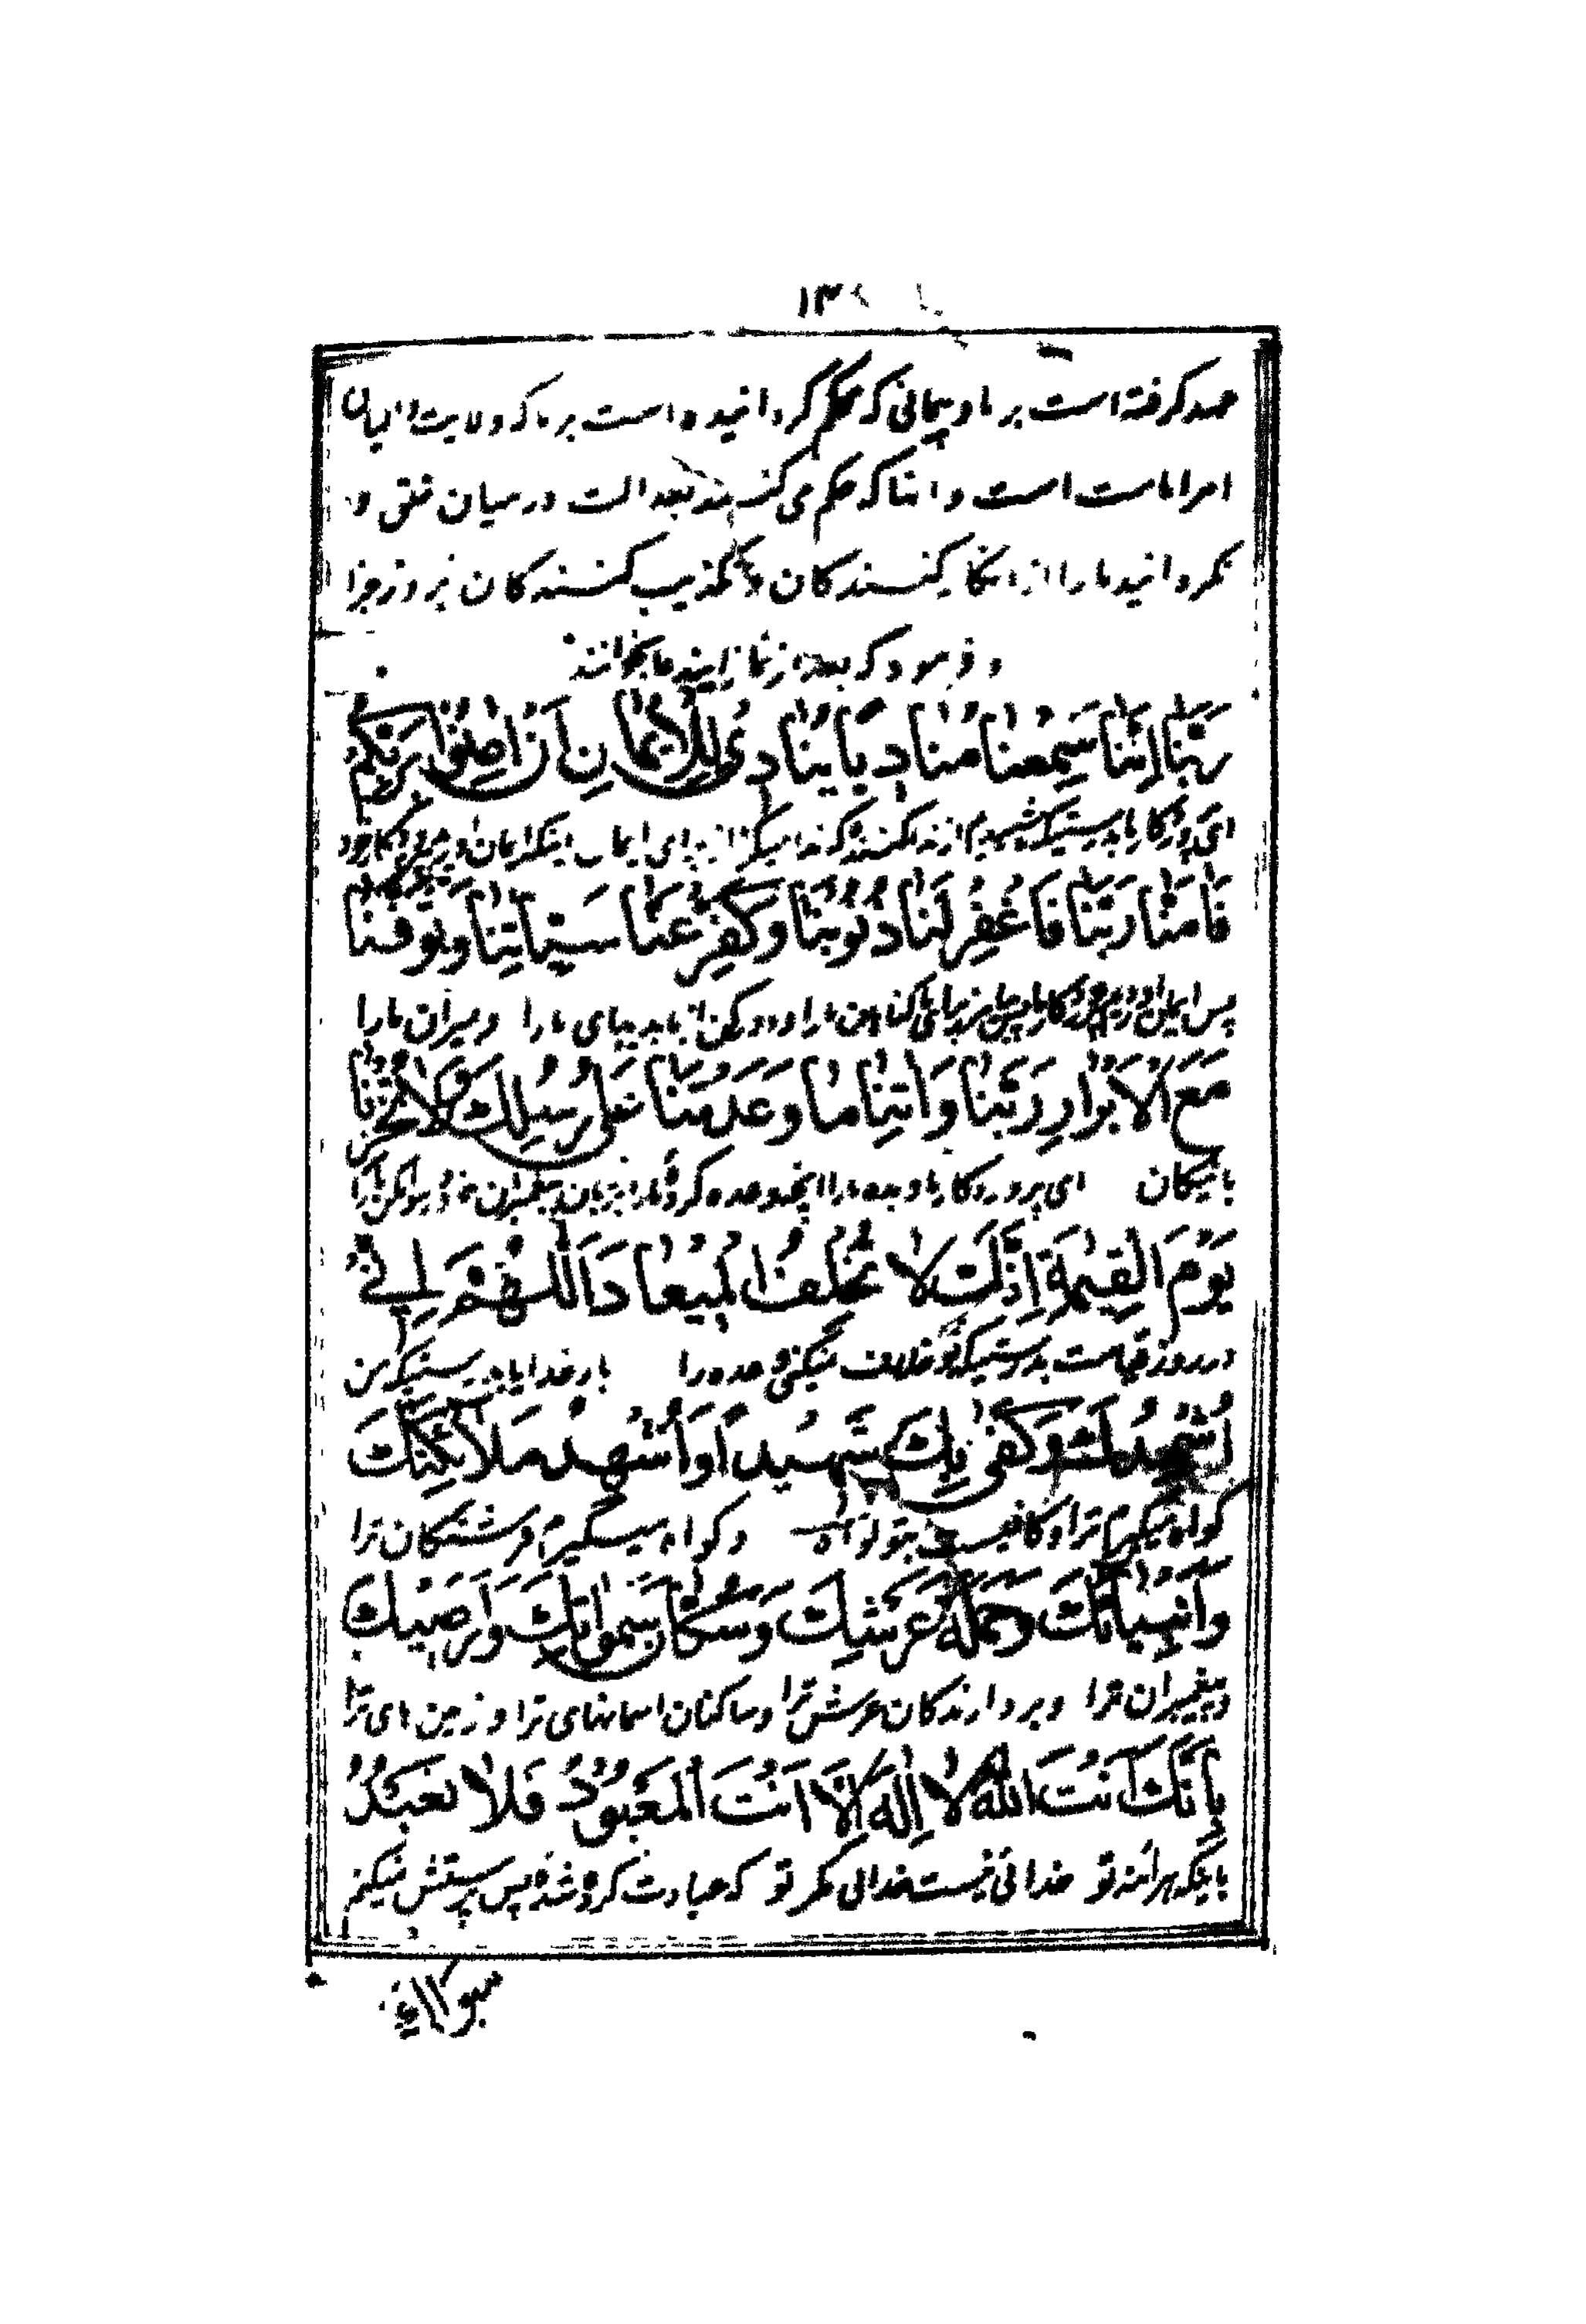 عهد گرفته است بر ما و پیمانی که محکم گردانیده است بر ما که ولایت والیان
امر امامت است و انها که حکم می کنند بعدالت در میان خلق و
نکردانید ما را از انکار کنندکان و تکذیب کنندکان بروز جزا
و فرمود که بعد از نماز این دعا بخوانند
رَبَّنَا اِنَّنَا سَمِعْنَا مُنَادِیًا یُنَادِی لِلْاِیمَانِ اَنْ اٰمِنُوا بِرَبِّکُمْ
ای پروردکار ما بدرستیکه شنیدیم ندا کننده که ندا میکرد از برای ایمان اینکه ایمان اورید بپروردکار خود
فَاٰمَنَّا رَبَّنَا فَاغْفِرْ لَنَا ذُنُوبَنَا وَکَفِّرْ عَنَّا سَیِّئَاتِنَا وَتَوَفَّنَا
پس ایمان اوردیم ای پروردکار ما پس بیامرز برای ما کناهان ما را و دور کن از ما بدیهای ما را و بمیران ما را
مَعَ الْاَبْرَارِ رَبَّنَا وَاٰتِنَا مَا وَعَدْتَنَا عَلٰی رُسُلِکَ وَلَا تُخْزِنَا
با نیکان ای پروردکار ما و بده ما را انچه وعده کرده ما را بر زبان پیغمبران خود و رسوا مکن ما را
یَوْمَ الْقِیٰمَةِ اِنَّکَ لَا تُخْلِفُ الْمِیعَادَ اَللّٰهُمَّ اِنِّی
در روز قیامت بدرستیکه تو خلاف نمیکنی وعده را بار خدایا بدرستیکه من
اُشْهِدُکَ وَکَفٰی بِکَ شَهِیدًا وَاُشْهِدُ مَلَائِکَتَکَ
کواه میکیرم ترا و کافیست بتو کواه و کواه میکیرم فرشتکان ترا
وَاَنْبِیَائَکَ وَحَمَلَةَ عَرْشِکَ وَسُکَّانَ سَمٰوَاتِکَ وَاَرَضِیکَ
و پیغمبران ترا و بردارندکان عرش ترا و ساکنان اسمانهای ترا و زمین های ترا
بِاَنَّکَ اَنْتَ اللهُ لَا اِلٰهَ اِلَّا اَنْتَ الْمَعْبُودُ فَلَا نَعْبُدُ
باینکه هرائنه تو خدائی نیست خدائی مکر تو که عبادت کرده شدهٔ پس پرستش نمیکنم